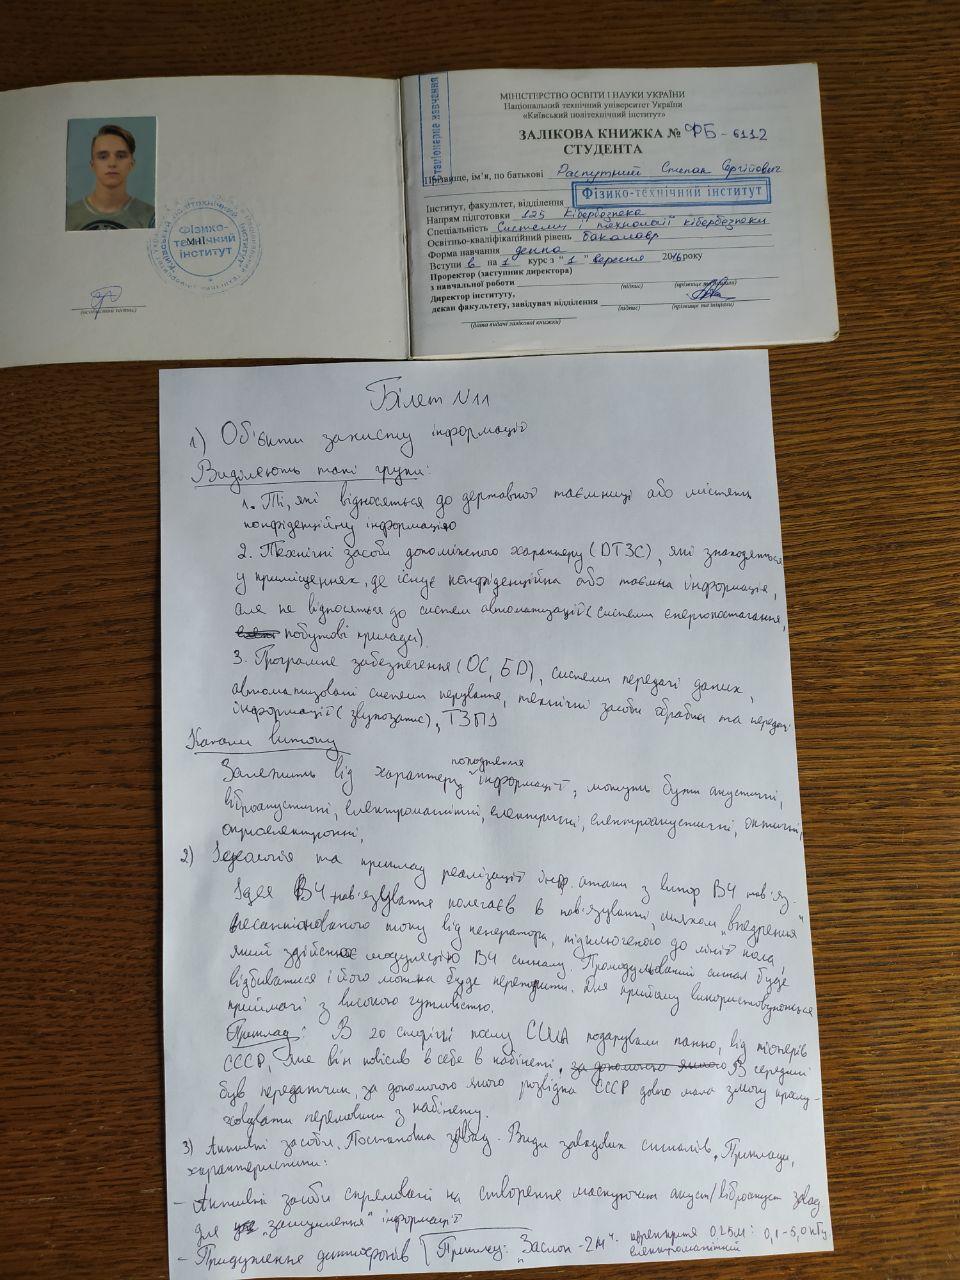 Стаціонарне навчання
МІНІСТЕРСТВО ОСВІТИ І НАУКИ УКРАЇНИ
Національний технічний університет України
«Київський політехнічний інститут»
ЗАЛІКОВА КНИЖКА № ФБ-6112
СТУДЕНТА
Прізвище, ім'я, по батькові Распутний Степан Сергійович
Інститут, факультет, відділення Фізико-технічний інститут
Напрям підготовки 125 Кібербезпека
Спеціальність Системи і технології кібербезпеки
Освітньо-кваліфікаційний рівень бакалавр
Форма навчання денна
Вступи в на 1 курс з "1" вересня 2016 року
Проректор (заступник директора)
з навчальної роботи
(підпис) (прізвище та ініціали)
Директор інституту,
декан факультету, завідувач відділення
(підпис) (прізвище та ініціали)
(дата видачі залікової книжки)
Фізико-
технічний
інститут
МНІ
(особистий підпис)
Білет №11
1) Об'єкти захисту інформації
Виділяють такі групи:
1. Ті, які відносяться до державної таємниці або містять
конфіденційну інформацію
2. Технічні засоби допоміжного характеру (ДТЗС), які знаходяться
у приміщеннях, де існує конфіденційна або таємна інформація,
але не відносяться до систем автоматизації (системи енергопостачання,
побутові прилади)
3. Програмне забезпечення (ОС, БД), системи передачі даних,
автоматизовані системи керування, технічні засоби обробки та передачі
інформації (звукозапис), ТЗПІ
Канали витоку
Залежить від характеру походження інформації, можуть бути акустичні,
віброакустичні, електромагнітні, електричні, електроакустичні, оптичні,
оптоелектронні,
2) Ідеологія та приклад реалізації інф. атаки з викор ВЧ нав'яз.
Ідея ВЧ нав'язування полягає в нав'язуванні, шляхом "внедрения"
несанкціонованого току від генератора, підключеного до лінії кола,
який здійснює модуляцію ВЧ сигналу. Промодульований сигнал буде
відбиватися і його можна буде перехопити. Для прийому використовуються
приймачі з високою чутливістю.
Приклад: В 20 сторіччі послу США подарували панно, від піонерів
СССР, яке він повісив в себе в кабінеті, за допомогою якого В середині
був передатчик, за допомогою якого розвідка СССР довго мала змогу прослу-
ховувати перемовини з кабінету.
3) Активні засоби. Постановка завад. Види завадових сигналів, Приклади,
характеристики:
- Активні засоби спрямовані на створення маскуючих акуст/віброакуст завад
для "зашумлення" інформації
- Придушення диктофонів Приклад: "Заслон-2М". перекриття 0.25м: 0,1-5,0 кГц
електромагнітний